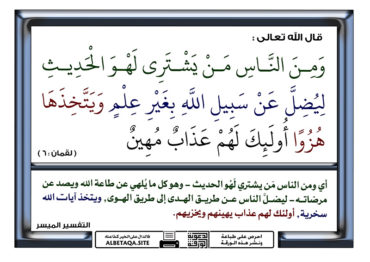 قال الله تعالى :
وَمِنَ النَّاسِ مَنْ يَشْتَرِى لَهْوَ الْحَدِيثِ
لِيُضِلَّ عَنْ سَبِيلِ اللَّهِ بِغَيْرِ عِلْمٍ وَيَتَّخِذَهَا
هُزُوًا أُولَئِكَ لَهُمْ عَذَابٌ مُهِينٌ
( لقمان : ٦ )
أي ومن الناس مَن يشتري لَهْو الحديث - وهو كل ما يُلهي عن طاعة الله ويصد عن
مرضاته - ليضلَّ الناس عن طريق الهدى إلى طريق الهوى، ويتخذ آيات الله
سخرية، أولئك لهم عذاب يهينهم ويخزيهم.
التفسير الميسر
احرص على طباعة
ونشر هذه الورقة
ALBETAQA.SITE